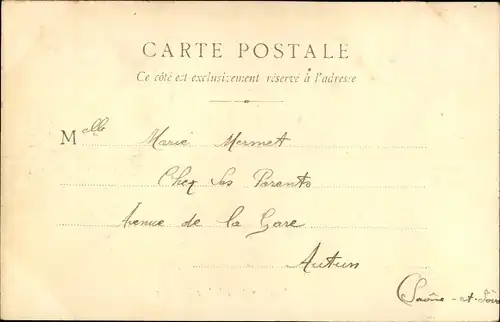 CARTE POSTALE
Ce côté est exclusivement réservé à l'adresse
Melle Marie Mermet
Chez ses Parents
Avenue de la Gare
Autun
(Saône-et-Loire